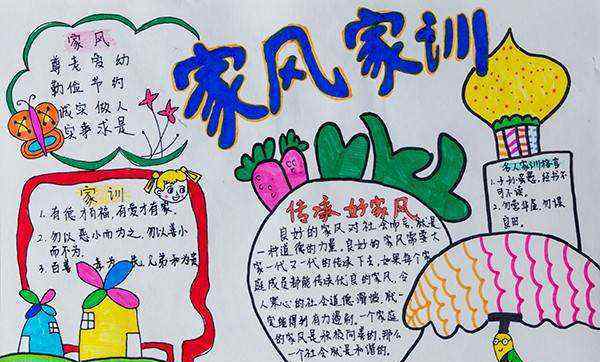 家风家训
家风
尊老爱幼
勤俭节约
诚实做人
实事求是
家训
1. 有德才有福，有爱才有家。
2. 勿以恶小而为之，勿以善小
而不为。
3. 百善 为先，兄弟和为贵
传承好家风
良好的家风对社会而言，就是
一种道德的力量，良好的家风需要大
家一代又一代的传承下去，如果每个家
庭成员都能传承优良的家风，令
人寒心的社会道德滑坡，就一
定能得到有力遏制，一个家庭
的家风是积极向善的，那么
一个社会就是和谐的。
名人家训格言
1、子孙虽愚，经书不
可不读。
2、勿营华屋，勿谋
良田。